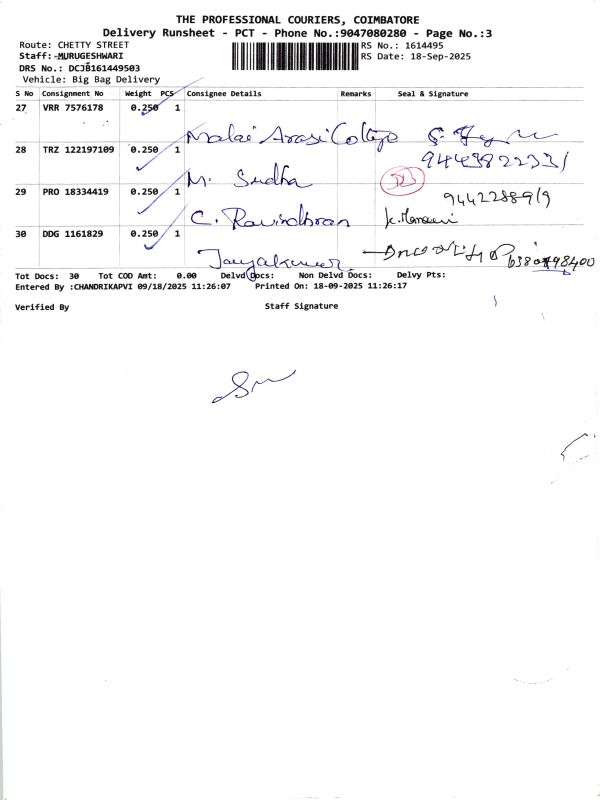 THE PROFESSIONAL COURIERS, COIMBATORE
Delivery Runsheet - PCT - Phone No.:9047080280 - Page No.:3
Route: CHETTY STREET RS No.: 1614495
Staff: MURUGESHWARI RS Date: 18-Sep-2025
DRS No.: DCJB161449503
Vehicle: Big Bag Delivery
S No Consignment No Weight PCS Consignee Details Remarks Seal & Signature
27 VRR 7576178 0.250 1
Malai Arasi College
28 TRZ 122197109 0.250 1 9443822331
M. Sudha
29 PRO 18334419 0.250 1 9442288919
C. Ravindhran
30 DDG 1161829 0.250 1
Jayakumar
Tot Docs: 30 Tot COD Amt: 0.00 Delvd Docs: Non Delvd Docs: Delvy Pts:
Entered By :CHANDRIKAPVI 09/18/2025 11:26:07 Printed On: 18-09-2025 11:26:17
Verified By Staff Signature